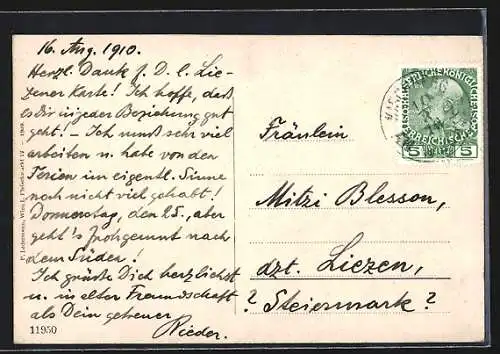 16. Aug. 1910.
Herzl. Dank f. D. l. Lie-
zener Karte! Ich hoffe, daß
es Dir in jeder Beziehung gut
geht! – Ich muß sehr viel
arbeiten u. habe von den
Ferien im eigentl. Sinne
noch nicht viel gehabt!
Donnerstag, den 25., aber
geht's frohgemut nach
dem Süden!
Ich grüße Dich herzlichst
u. in alter Freundschaft
als Dein getreuer
Rieder.
11950
P. Ledermann, Wien I., Fleischmarkt
Fräulein
Mitzi Blesson,
dzt. Liezen,
? Steiermark ?
5 5